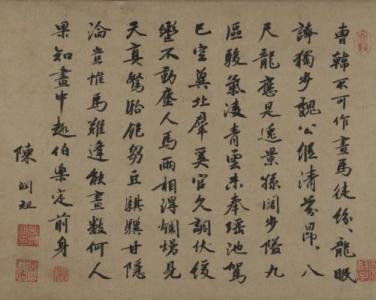 曹韓不可作畫馬徒紛〻龍眠
誇獨步魏公繼清芬昂〻八
尺龍應是逸景孫闊步隘九
區駿氣凌青雲未奉瑤池駕
已空冀北羣奚官久調伏緩
轡不動塵人馬兩相得爛熳見
天真駑駘飽芻豆騏驥甘隱
淪豈惟馬難逢能畫數何人
果知畫中趣伯樂定前身
陳